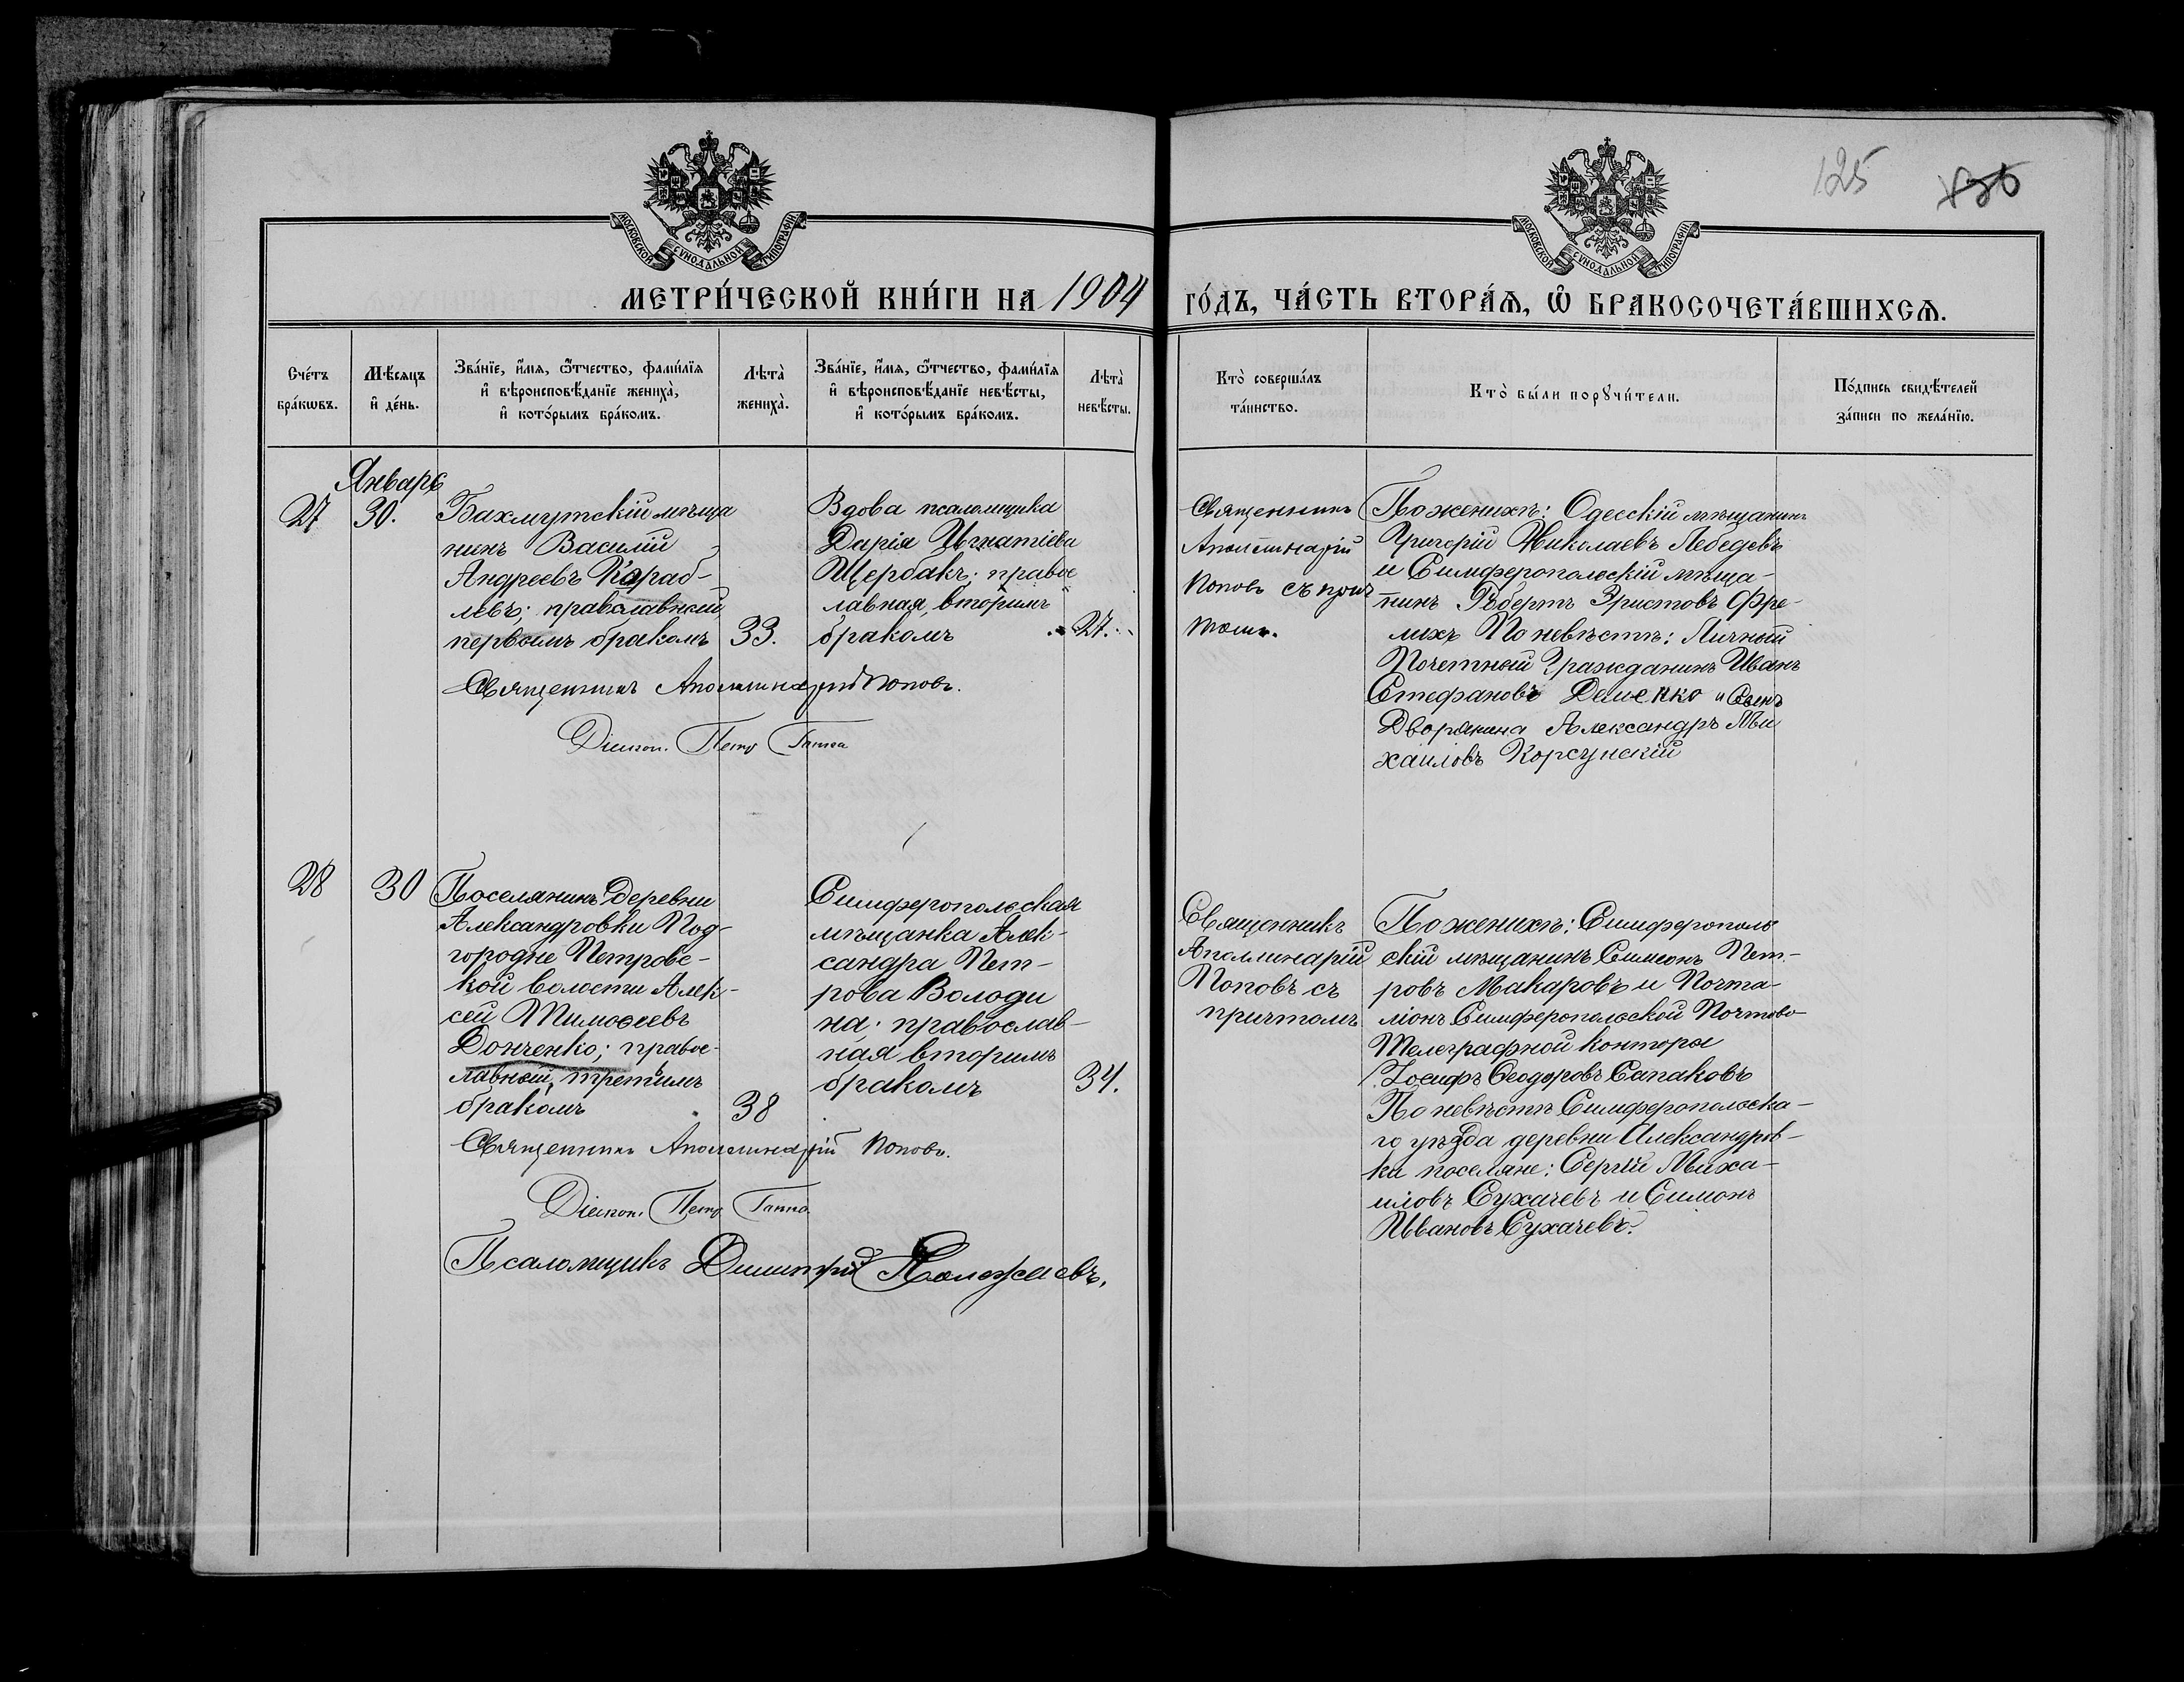 125
МОСКОВСКОЙ СУНОДАЛЬНОЙ ТИПОГРАФІИ
МОСКОВСКОЙ СУНОДАЛЬНОЙ ТИПОГРАФІИ
МЕТРИ́ЧЕСКОЙ КНИ́ГИ НА 1904 ГО́ДЪ, ЧА́СТЬ ВТОРА́Ѧ, Ѽ БРАКОСОЧЕТА́ВШИХСѦ.
Сче́тъ
бра́кѡвъ.
Мѣ́сяцъ
и҆ де́нь.
Зва́нїе, и҆́мѧ, ѻ҆́тчество, фами́лїѧ
и҆ вѣроисповѣ́данїе жениха̀,
и҆ кото́рымъ бра́комъ.
Лѣ́та̀
жениха̀.
Зва́нїе, и҆́мѧ, ѻ҆́тчество, фами́лїѧ
и҆ вѣроисповѣ́данїе невѣ́сты,
и҆ кото́рымъ бра́комъ.
Лѣ́та̀
невѣ́сты.
Кто̀ соверша́лъ
та́инство.
Кто̀ бы́ли порꙋчи́тели.
По́дпись свидѣ́телей
за́писи по жела́нїю.
Январь
27
30.
Бахмутскій мѣща
нинъ Василій
Андреевъ Караб-
левъ; православный,
первымъ бракомъ
33.
Вдова псаломщика
Дарія Игнатіева
Щербакъ; правос
лавная, вторымъ
бракомъ
27.
Священникъ
Аполлинарій
Поповъ съ прич
томъ.
По женихѣ: Одесскій мѣщанинъ
Григорій Николаевъ Лебедевъ
и Симферопольскій мѣща-
нинъ Робертъ Эристовъ Фре-
лихъ По невѣстѣ: Личный
Почетный Гражданинъ Иванъ
Стефановъ Деменко и Сынъ
Дворянина Александръ Ми
хаиловъ Корсунскій
Священникъ Аполлинарій Поповъ.
Діаконъ Петръ
28
30
Поселянинъ Деревни
Александровки Под-
городне Петровс-
кой волости Алек-
сей Тимоѳеевъ
Донченко; правос-
лавный, третьимъ
бракомъ
38
Симферопольская
мѣщанка Алек-
сандра Пет-
рова Володи
на; православ-
ная вторымъ
бракомъ
34.
Священникъ
Аполлинарій
Поповъ съ
причтомъ
По женихѣ: Симферополь
скій мѣщанинъ Симеонъ Пет-
ровъ Макаровъ и Почта-
ліонъ Симферопольской Почтово-
Телеграфной Конторы
Іосифъ Ѳеодоровъ Сапаковъ
По невѣстѣ Симферопольска-
го уѣзда деревни Александров-
ка поселяне: Сергѣй Миха-
иловъ Сухачевъ и Симонъ
Ивановъ Сухачевъ.
Священникъ Аполлинарій Поповъ.
Діаконъ Петръ
Псаломщикъ Димитрій Полежаевъ.